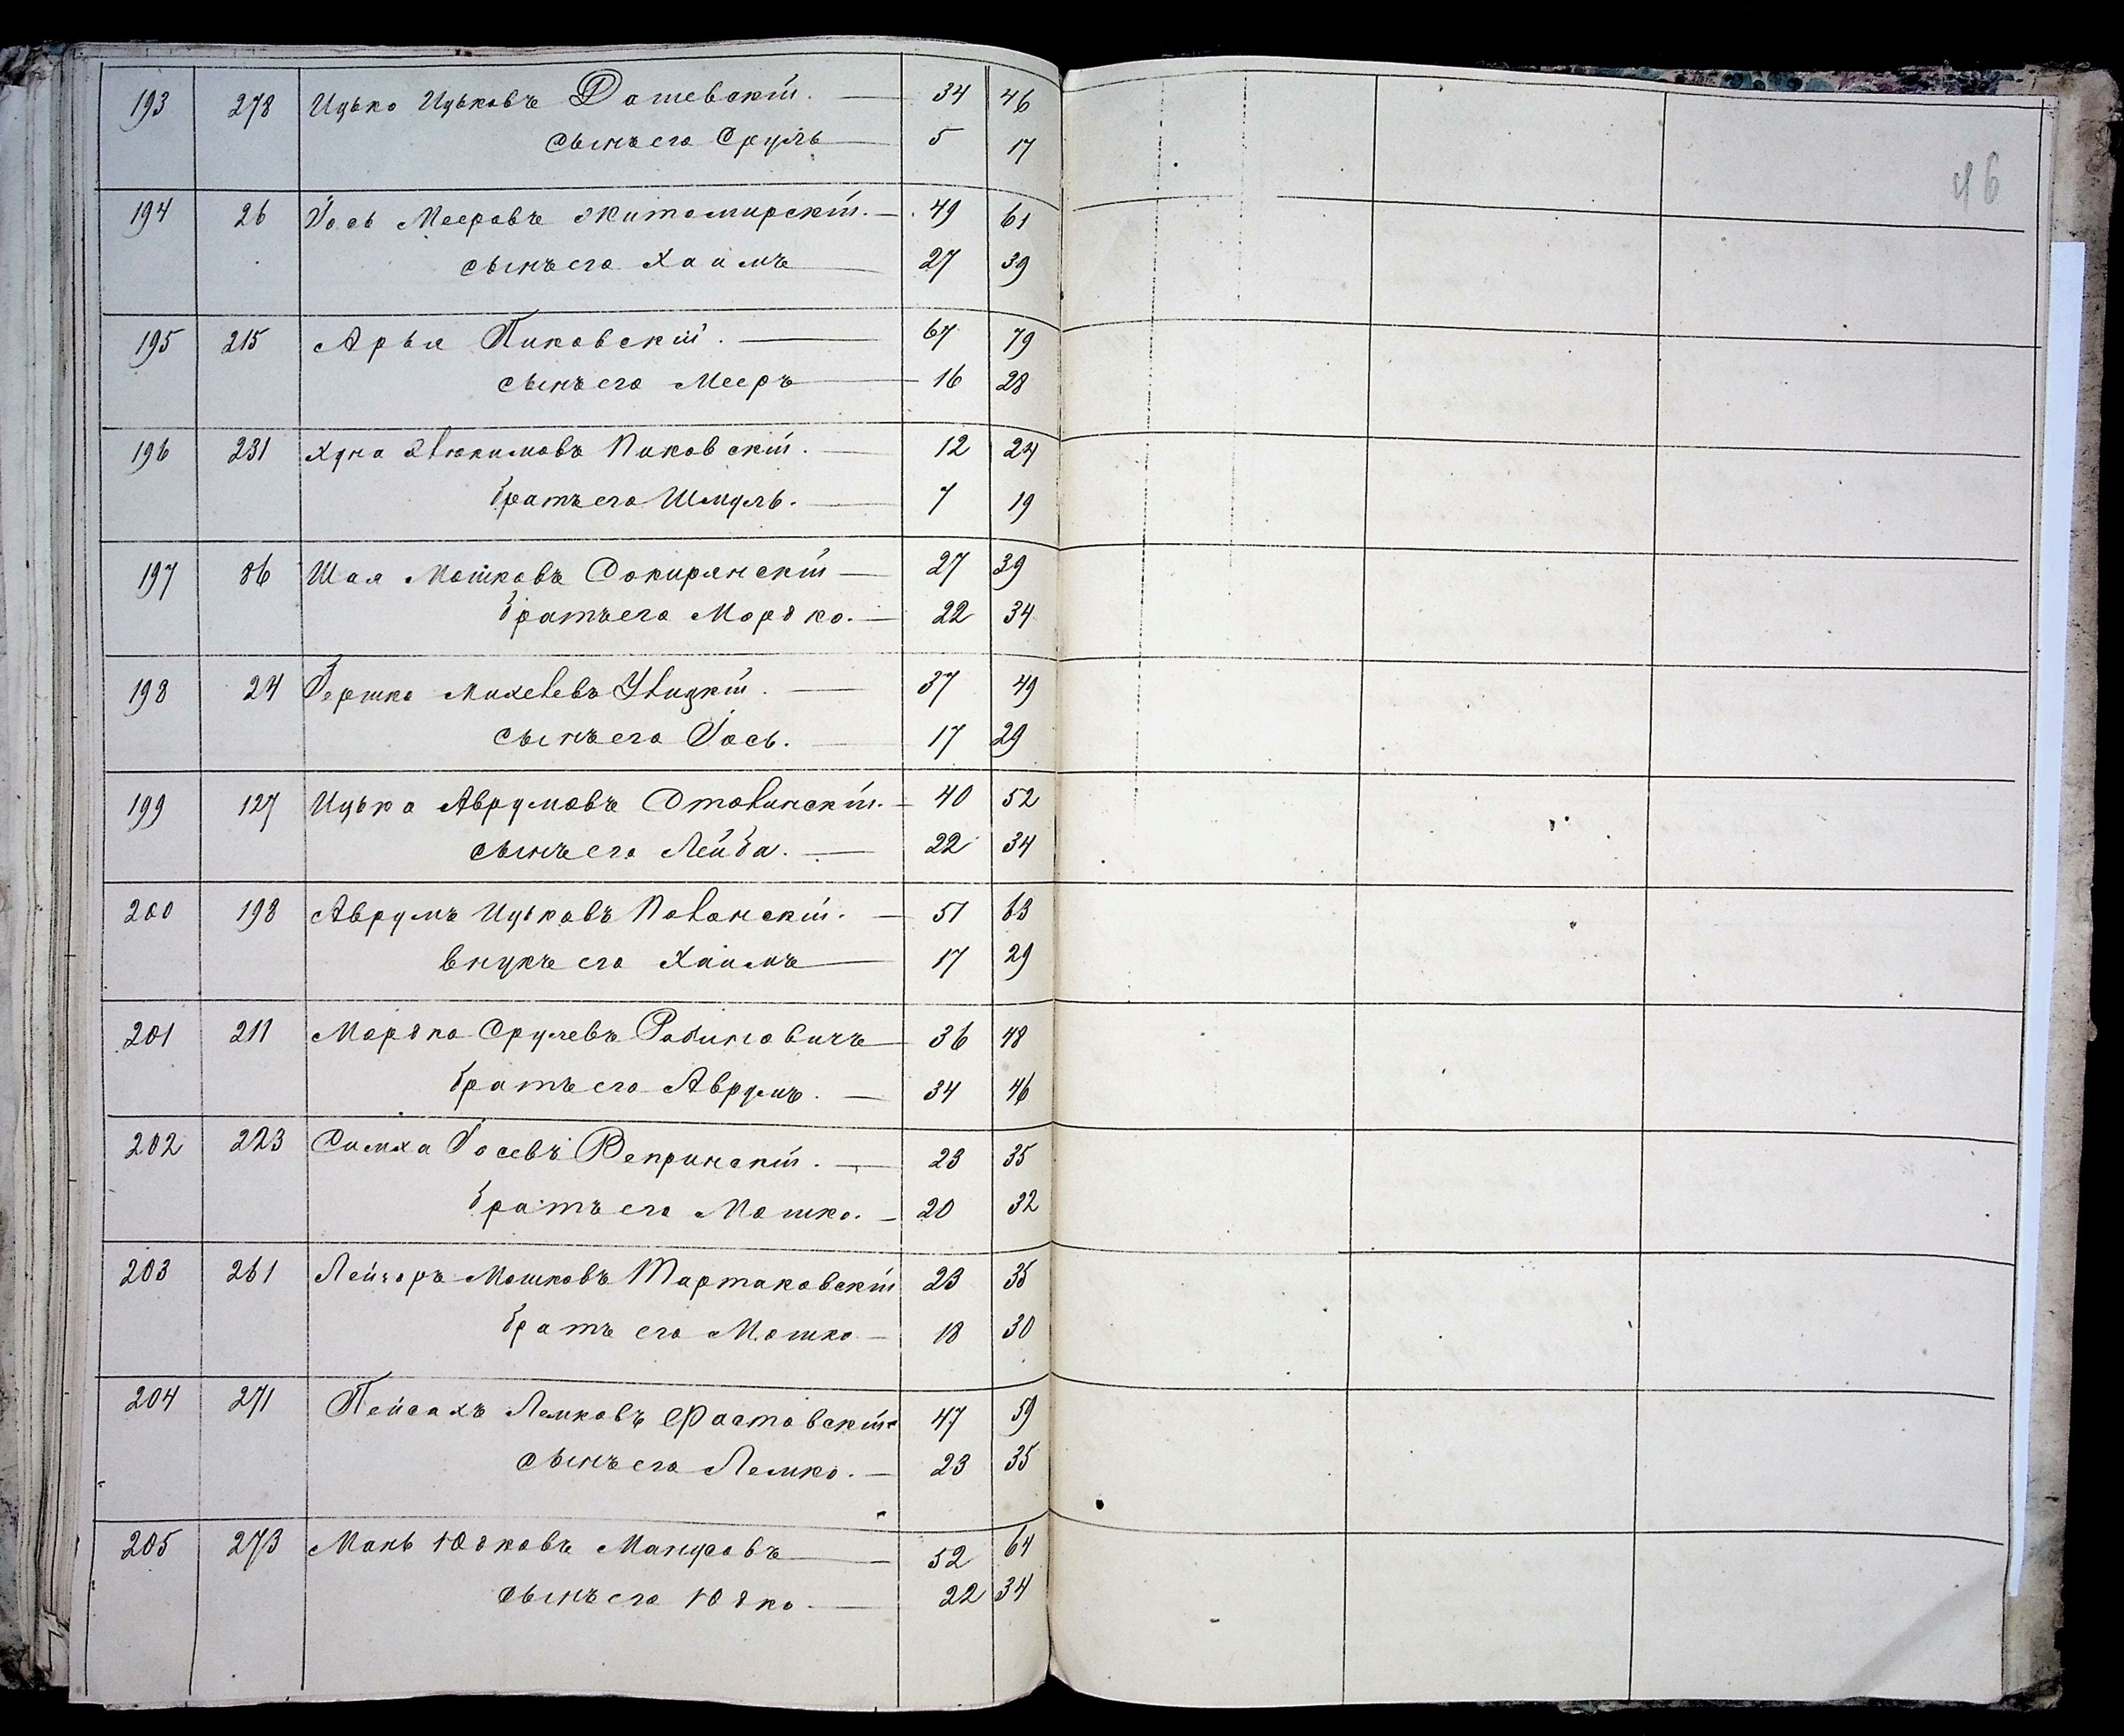 193 278 Ицько Ицьковъ Дашевскій. — 34 46
сынъ его Сруль — 5 17
46
194 26 Іось Мееровъ Житомирскій. — 49 61
сынъ его Хаимъ — 27 39
195 215 Арья Пиковскій. — 67 79
сынъ его Мееръ — 16 28
196 231 Хуна Пиковскій. — 12 24
братъ его Шмуль. — 7 19
197 86 Шая Мошковъ Сокирянскій — 27 39
братъ его Мордко. — 22 34
198 24 Гершко Михелевъ Улицкій. — 37 49
сынъ его Іось. — 17 29
199 127 Ицько Аврумовъ Ставинскій. — 40 52
сынъ его Лейба. — 22 34
200 198 Аврумъ Ицьковъ Поволскій. — 51 63
внукъ его Хаимъ — 17 29
201 211 Мордко Срулевъ Рабиновичъ — 36 48
братъ его Аврумъ. — 34 46
202 223 Симха Іосевъ Вепринскій. — 23 35
братъ его Мошко. — 20 32
203 261 Лейзоръ Мошковъ Тартаковскій 23 35
братъ его Мошко — 18 30
204 271 Пейсахъ Лемковъ Фастовскій — 47 59
сынъ его Лемко. — 23 35
205 273 Мань Юдковъ Манусовъ — 52 64
сынъ его Юдко. — 22 34